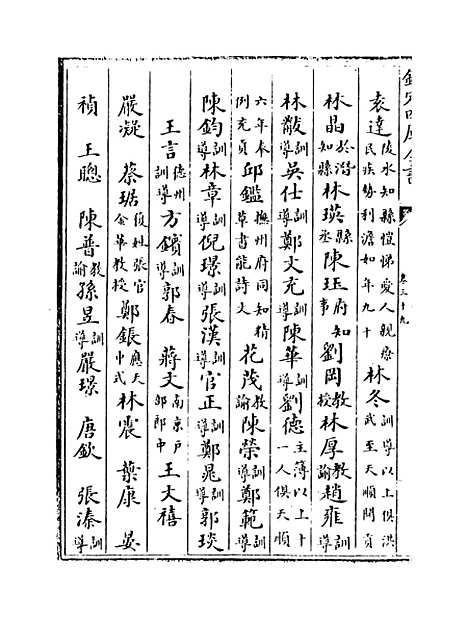 欽定四庫全書
卷三十九
袁達陵水知縣愷悌愛人親療民疾勢利澹如年九十 林冬訓導以上俱洪武至天順間貢
林晶於潛知縣林瑛縣丞陳珏府知事劉岡教授林厚教諭趙雍訓導
林黻訓導吳仕訓導鄭文充訓導陳華訓導劉德主簿以上十一人俱天順
六年奉例充貢 邱鑑撫州府同知精草書能詩文 花茂教諭陳榮訓導鄭範訓導
陳鈞訓導林章訓導倪璟訓導張漢訓導官正訓導鄭晁訓導郭琰
王言德州訓導方鑌訓導郭春 蔣文南京戶部郎中王文禧
嚴凝 蔡琚復姓張官金華教授鄭鋹應天中式林震 葉康 晏
禎 王聰 陳普教諭孫昱訓導嚴璟 唐欽 張溱訓導